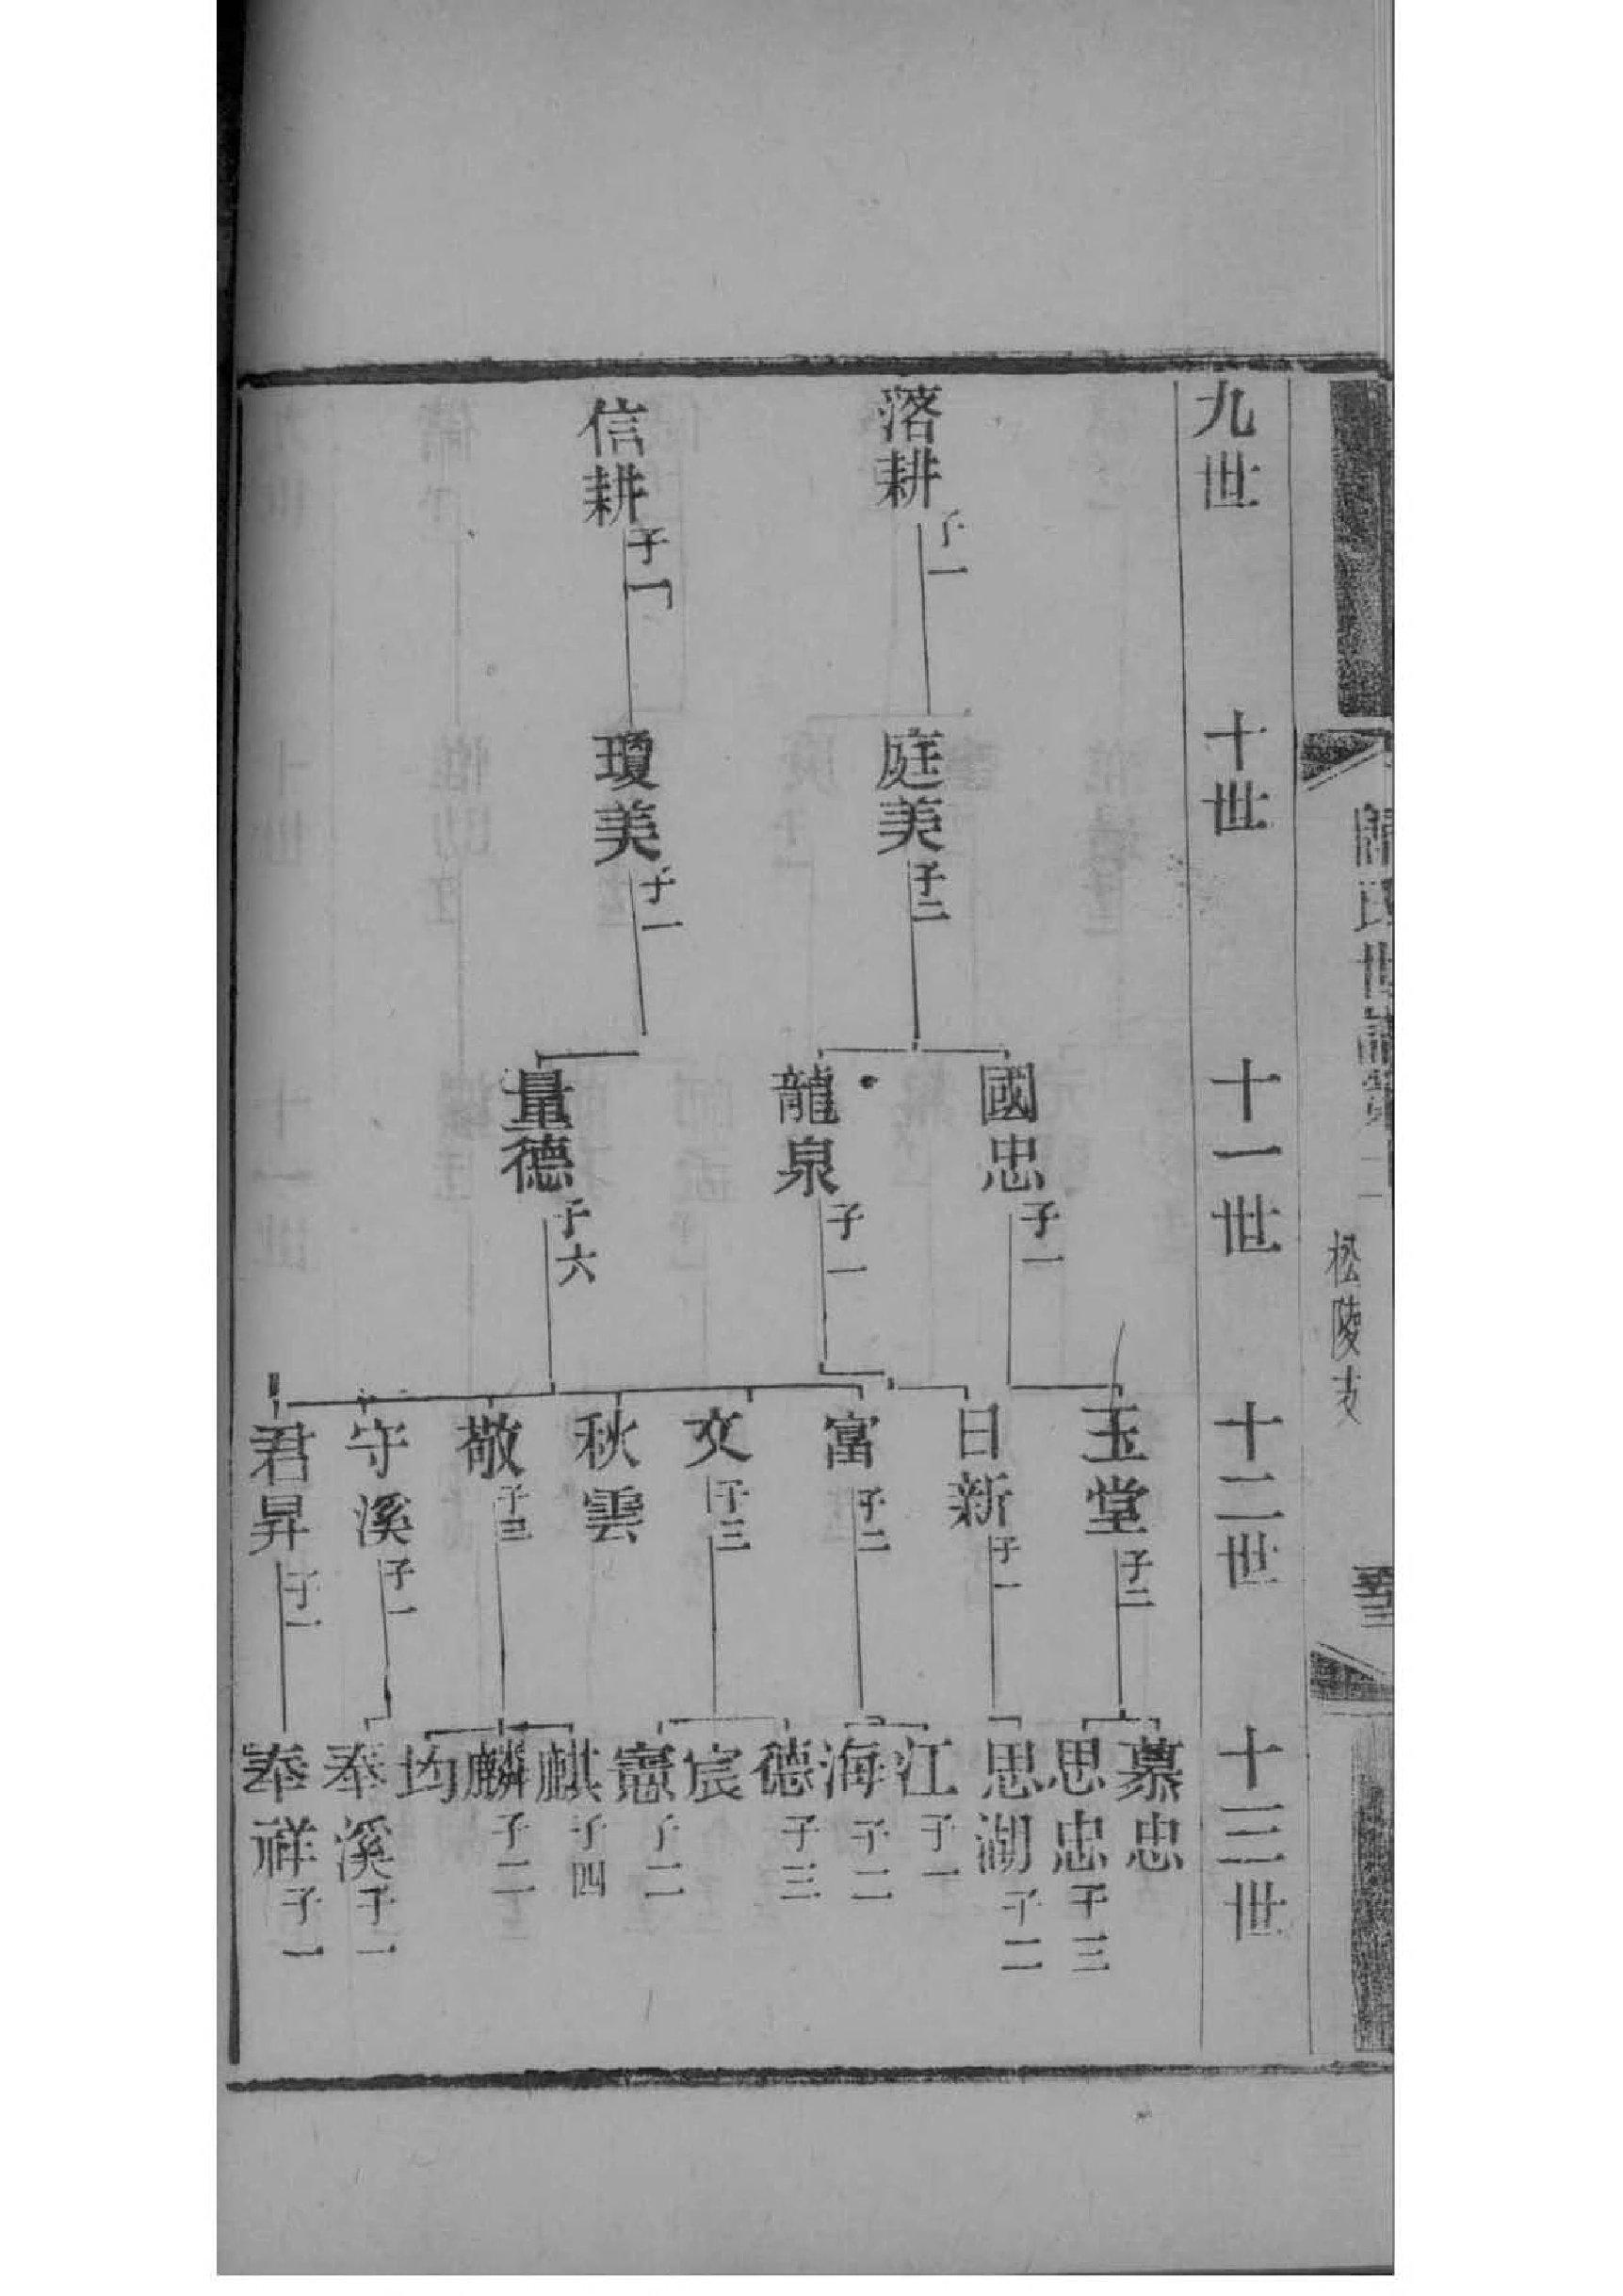 松陵支
九世 十世 十一世 十二世 十三世
落耕 子一
信耕 子一
庭美 子二
瓊美 子一
國忠 子一
龍泉 子一
量德 子六
玉堂 子二
日新 子一
富 子二
文 子三
秋雲
敬 子三
守溪 子一
君昇 子一
慕忠
思忠 子三
思湖 子二
江 子一
海 子二
德 子三
宸
憲 子二
麒 子四
麟 子二
均
奉溪 子一
奉祥 子一